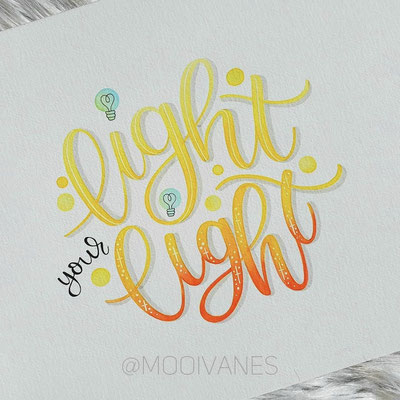 light
your
light
@MOOIVANES